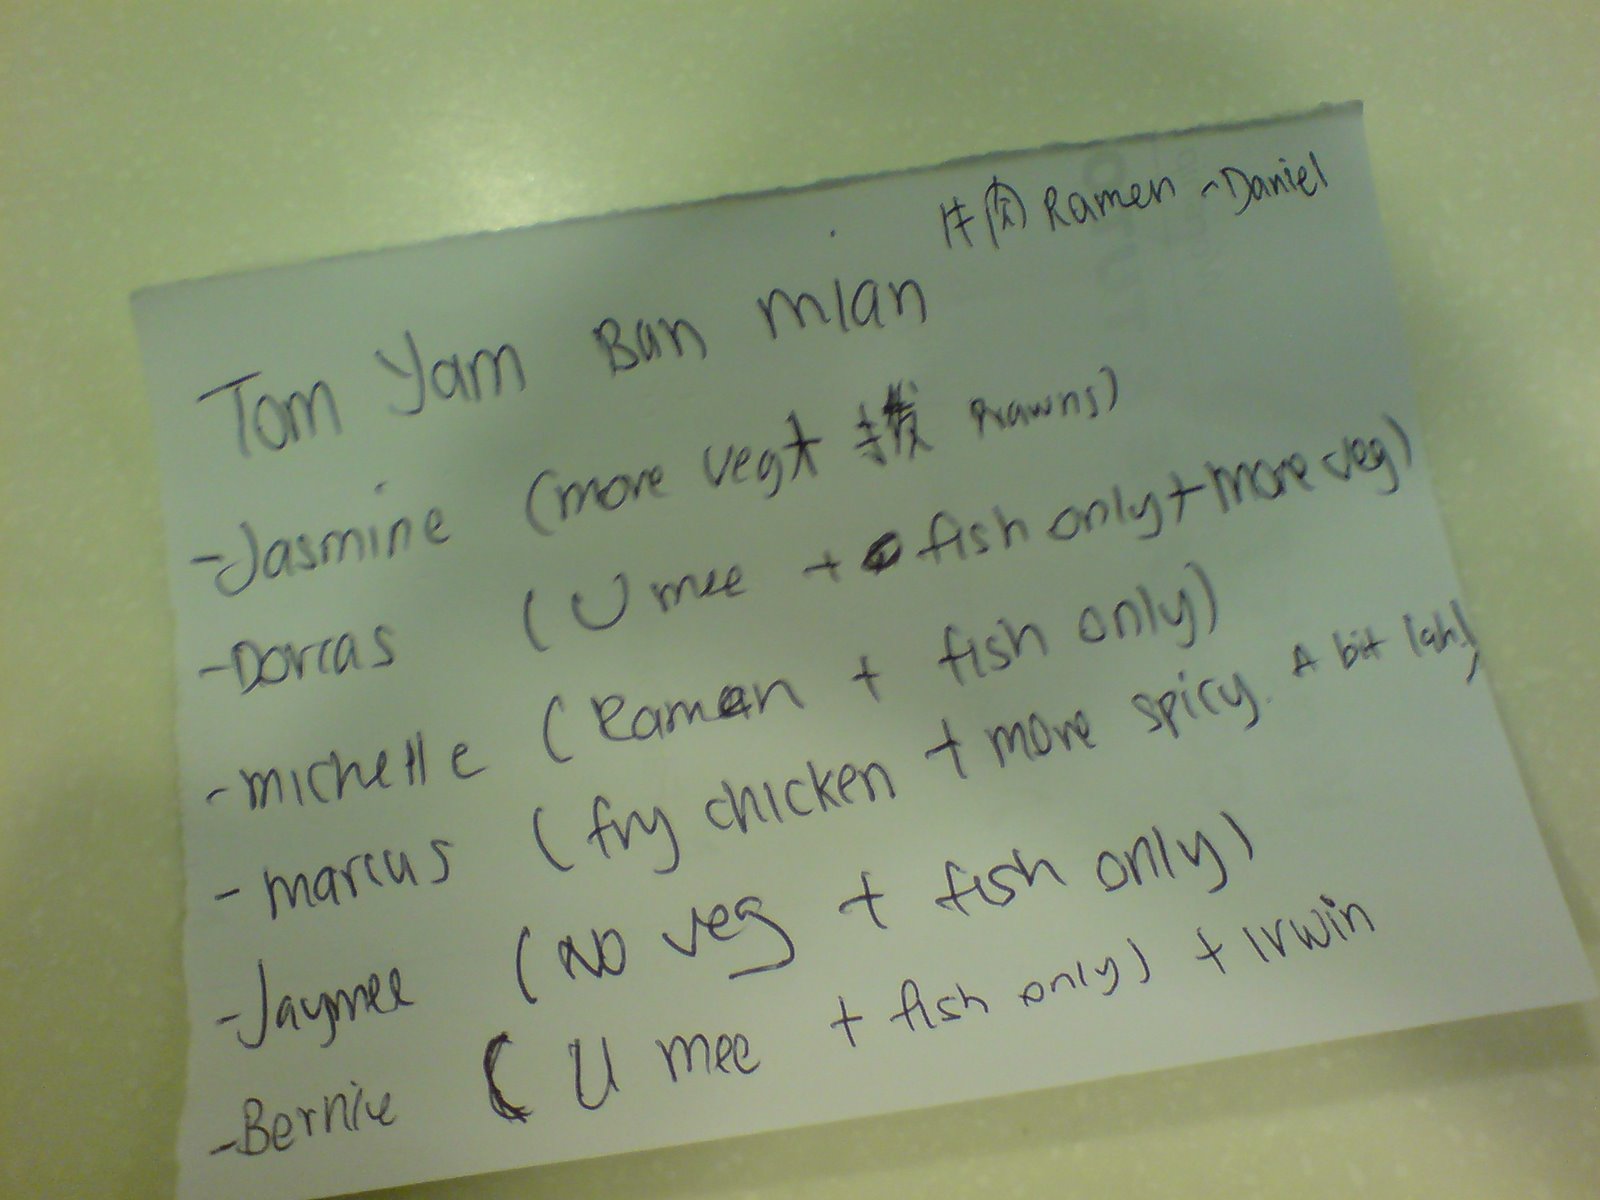 牛肉 Ramen - Daniel
Tom Yam Ban mian
- Jasmine (more veg + prawns)
- Dorcas (U mee + fish only + more veg)
- michelle (Ramen + fish only)
- marcus (fry chicken + more spicy. A bit lah!)
- Jaymee (no veg + fish only)
- Bernie (U mee + fish only) + Irwin